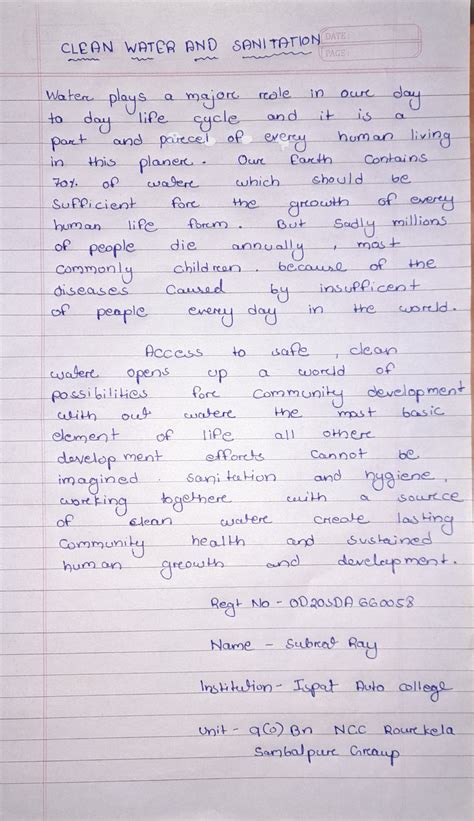 DATE
PAGE
CLEAN WATER AND SANITATION
Watere plays a majore role in oure day
to day life cycle and it is a
part and parcel of every human living
in this planere. Oure Earth contains
70% of watere which should be
sufficient fore the growth of every
human life form. But sadly millions
of people die annually, most
commonly children. because of the
diseases caused by insufficent
of people every day in the world.
Access to safe, clean
watere opens up a world of
possibilities fore community development
with out watere the most basic
element of life all othere
development efforcts cannot be
imagined. sanitation and hygiene,
working togethere with a source
of clean watere create lasting
community health and sustained
human growth and development.
Regt No - OD20SDA660058
Name - Subrat Ray
Institution - Ispat Auto college
Unit - 9(O) Bn NCC Rourekela
Sambalpure Group